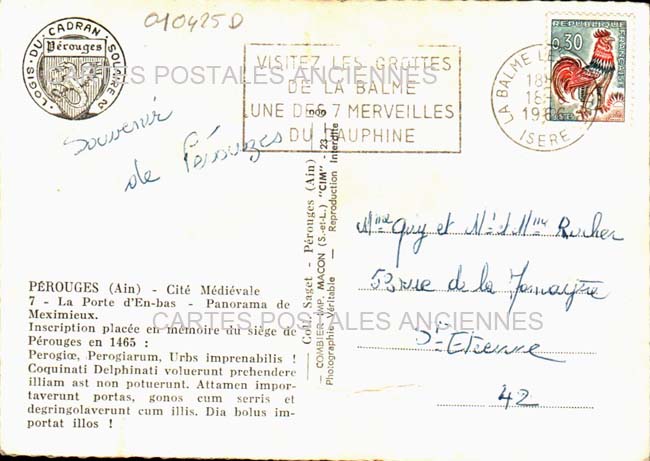 010425D
LOGIS · DU · CADRAN · SOLAIRE
Pérouges
VISITEZ LES GROTTES
DE LA BALME
UNE DES 7 MERVEILLES
DU DAUPHINE
LA BALME LE
18
18
19
ISERE
REPUBLIQUE FRANÇAISE
0,30
POSTES
CARTES POSTALES ANCIENNES
Souvenir
de Pérouges
Mme Guy et Mr et Mme Rocher
53 rue de la
St Etienne
42
Coll. Saget - Pérouges (Ain)
COMBIER IMP. MACON (S.-et-L.) "CIM" - 23
Photographie Véritable / Reproduction Interdite
PÉROUGES (Ain) - Cité Médiévale
7 - La Porte d'En-bas - Panorama de
Meximieux.
Inscription placée en mémoire du siège de
Pérouges en 1465 :
Perogiæ, Perogiarum, Urbs imprenabilis !
Coquinati Delphinati voluerunt prehendere
illiam ast non potuerunt. Attamen impor-
taverunt portas, gonos cum serris et
degringolaverunt cum illis. Dia bolus im-
portat illos !
CARTES POSTALES ANCIENNES